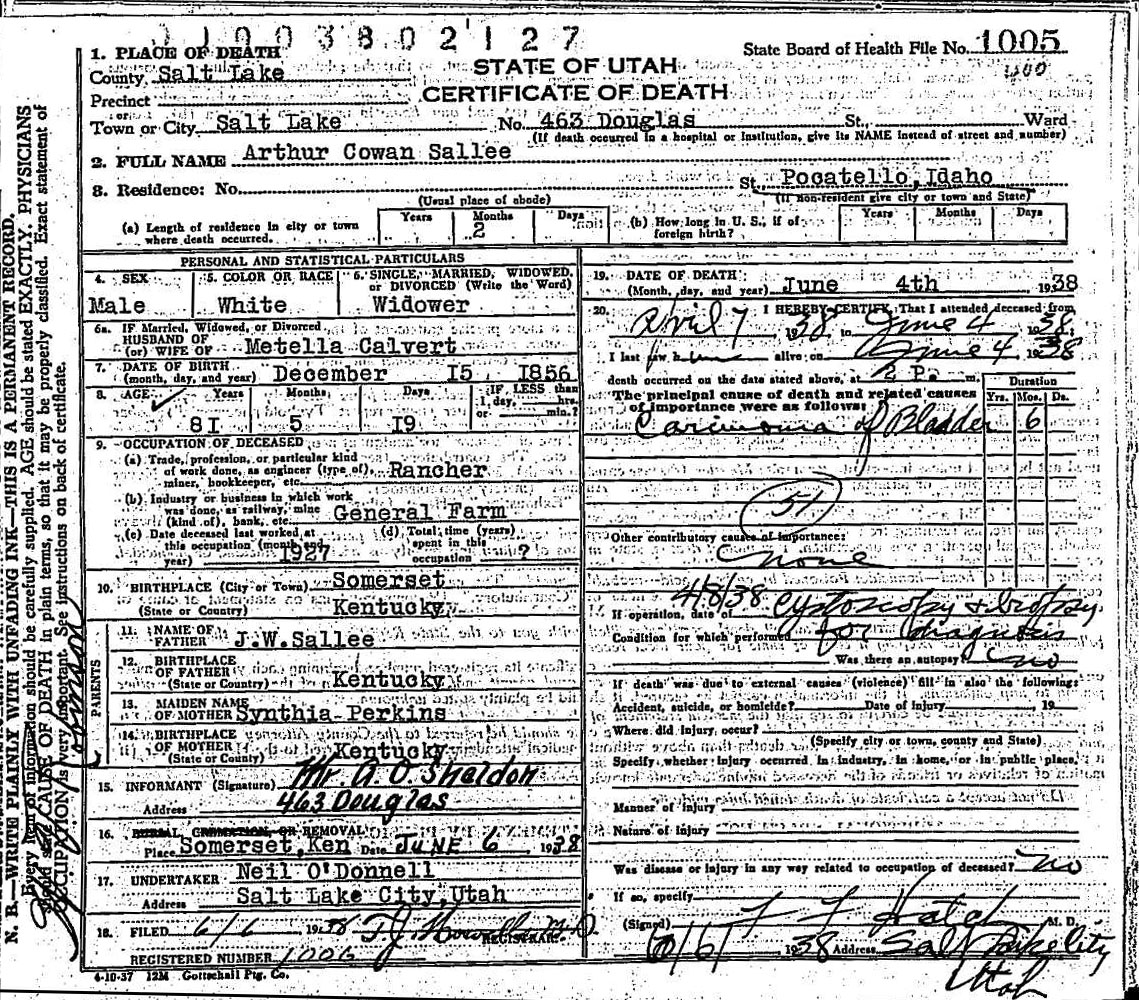 1003802127
State Board of Health File No. 1005
1. PLACE OF DEATH
STATE OF UTAH
County Salt Lake
CERTIFICATE OF DEATH
Precinct
or
Town or City Salt Lake No. 463 Douglas St. Ward
(If death occurred in a hospital or institution, give its NAME instead of street and number)
2. FULL NAME Arthur Cowan Sallee
3. Residence: No. St. Pocatello, Idaho
(Usual place of abode) (If non-resident give city or town and State)
(a) Length of residence in city or town where death occurred. Years Months 2 Days (b) How long in U. S., if of foreign birth? Years Months Days
PERSONAL AND STATISTICAL PARTICULARS
4. SEX 5. COLOR OR RACE 6. SINGLE, MARRIED, WIDOWED, or DIVORCED (Write the Word)
Male White Widower
6a. IF Married, Widowed, or Divorced
HUSBAND OF
(or) WIFE OF Metella Calvert
7. DATE OF BIRTH
(month, day, and year) December I5 I856
8. AGE Years Months Days IF LESS than 1 day, hrs. or min.?
8I 5 I9
9. OCCUPATION OF DECEASED
(a) Trade, profession, or particular kind
of work done, as engineer (type of), Rancher
miner, bookkeeper, etc.
(b) Industry or business in which work
was done, as railway, mine
(kind of), bank, etc. General Farm
(c) Date deceased last worked at this occupation (month and year) 1927 (d) Total time (years) spent in this occupation ?
10. BIRTHPLACE (City or Town) Somerset
(State or Country) Kentucky
PARENTS
11. NAME OF
FATHER J.W.Sallee
12. BIRTHPLACE
OF FATHER
(State or Country) Kentucky
13. MAIDEN NAME
OF MOTHER Synthia Perkins
14. BIRTHPLACE
OF MOTHER
(State or Country) Kentucky
15. INFORMANT (Signature) Mr A. O. Sheldon
Address 463 Douglas
16. BURIAL, CREMATION, OR REMOVAL
Place Somerset, Ken Date JUNE 6 1938
17. UNDERTAKER Neil O'Donnell
Address Salt Lake City, Utah
18. FILED 6/6 1938 T. J. Howells M.D.
REGISTRAR.
REGISTERED NUMBER 1006
4-10-37 12M Gottschall Ptg. Co.
19. DATE OF DEATH:
(Month, day, and year) June 4th 1938
20. I HEREBY CERTIFY, That I attended deceased from
April 7 1938 to June 4 1938
I last saw him alive on June 4 1938
death occurred on the date stated above, at 2 P. m.
The principal cause of death and related causes
of importance were as follows:
Duration
Yrs. Mos. Ds.
Carcinoma of Bladder 6
51
Other contributory causes of importance:
None
If operation, date of 4/8/38 Cystoscopy & biopsy
Condition for which performed for diagnosis
Was there an autopsy? no
If death was due to external causes (violence) fill in also the following:
Accident, suicide, or homicide? Date of injury 19
Where did injury occur?
(Specify city or town, county and State)
Specify whether injury occurred in industry, in home, or in public place,
Manner of injury
Nature of injury
Was disease or injury in any way related to occupation of deceased? no
If so, specify
(Signed) F F Hatch M. D.
6/6/ 1938 Address Salt Lake City
Utah
N. B.—WRITE PLAINLY WITH UNFADING INK—THIS IS A PERMANENT RECORD.
Every item of information should be carefully supplied. AGE should be stated EXACTLY. PHYSICIANS
should state CAUSE OF DEATH in plain terms, so that it may be properly classified. Exact statement of
OCCUPATION is very important. See instructions on back of certificate.